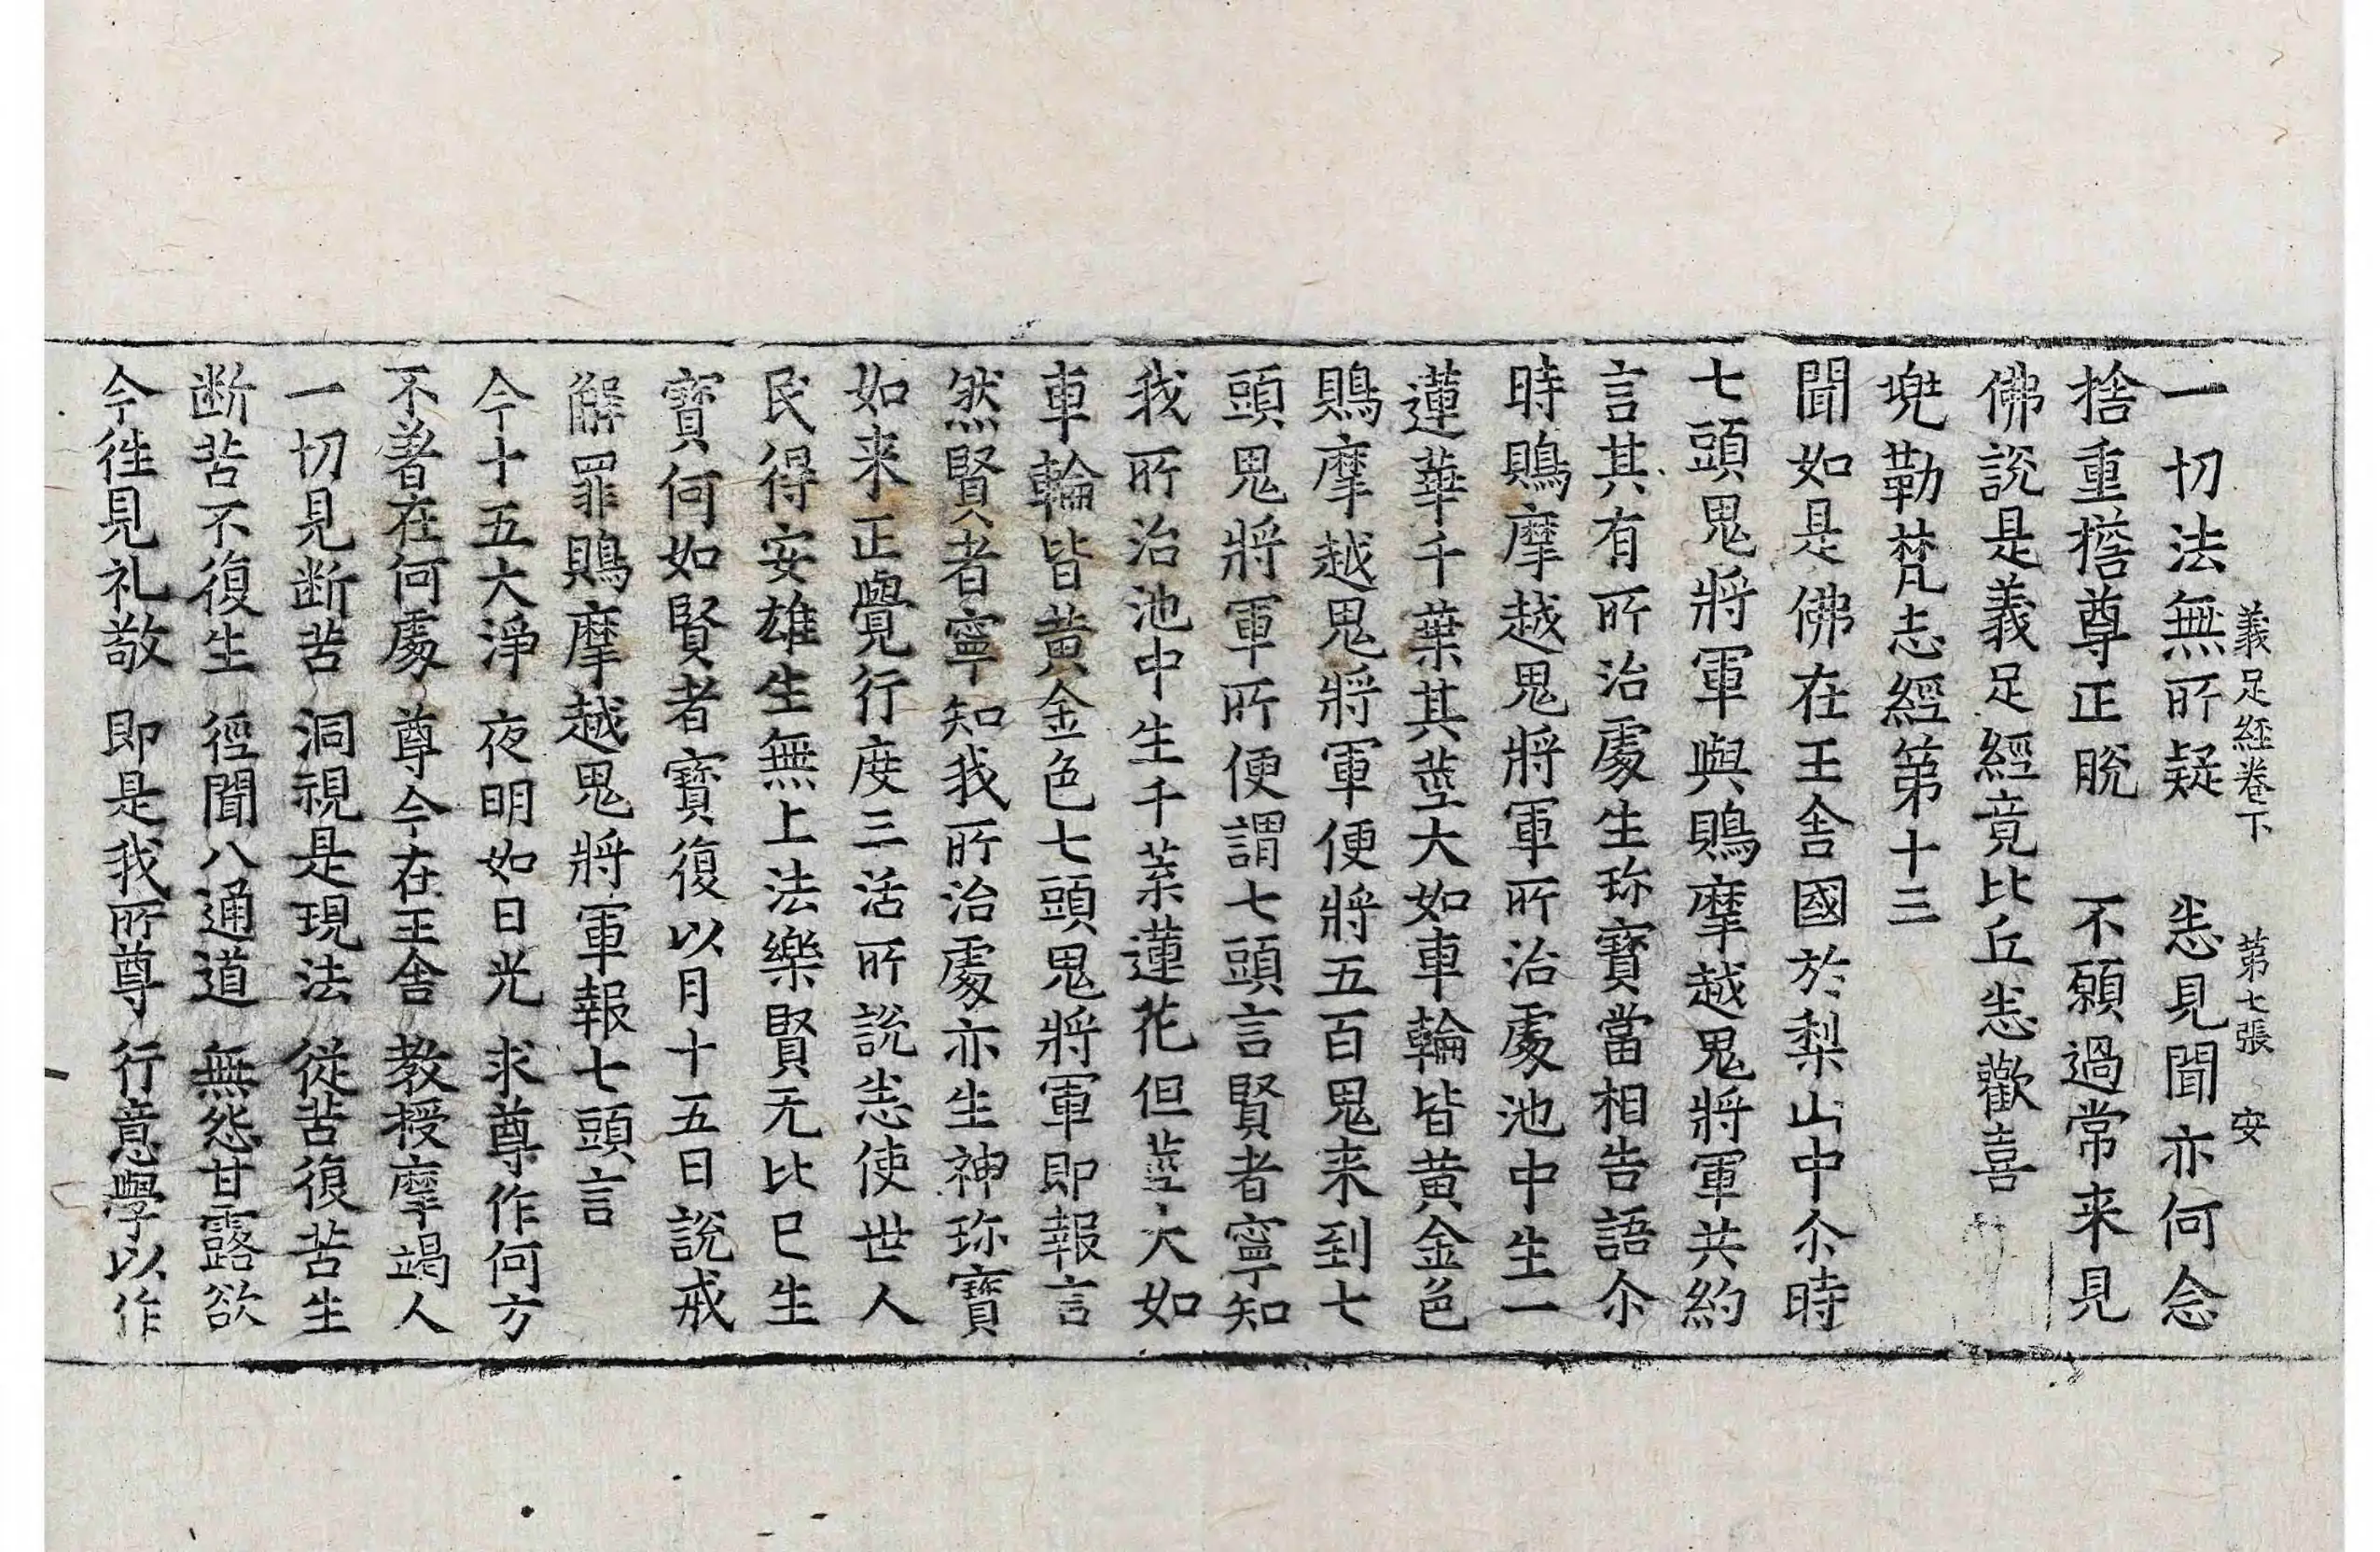 義足經卷下 第七張 安
一切法無所疑 悉見聞亦何念
捨重擔尊正脫 不願過常来見
佛說是義足經竟比丘悉歡喜
兠勒梵志經第十三
聞如是佛在王舍國於梨山中尒時
七頭鬼將軍與鵙摩越鬼將軍共約
言其有所治處生珎寶當相告語尒
時鵙摩越鬼將軍所治處池中生一
蓮華千葉其莖大如車輪皆黃金色
鵙摩越鬼將軍便將五百鬼来到七
頭鬼將軍所便謂七頭言賢者寧知
我所治池中生千葉蓮花但莖大如
車輪皆黃金色七頭鬼將軍即報言
然賢者寧知我所治處亦生神珎寶
如来正覺行度三活所說悉使世人
民得安雄生無上法樂賢无比已生
寶何如賢者寶復以月十五日說戒
解罪鵙摩越鬼將軍報七頭言
今十五大淨 夜明如日光 求尊作何方
不著在何處 尊今在王舍 教授摩竭人
一切見断苦 洞視是現法 從苦復苦生
断苦不復生 徑聞八通道 無怨甘露欲
今徃見礼敬 即是我所尊 行意學以作